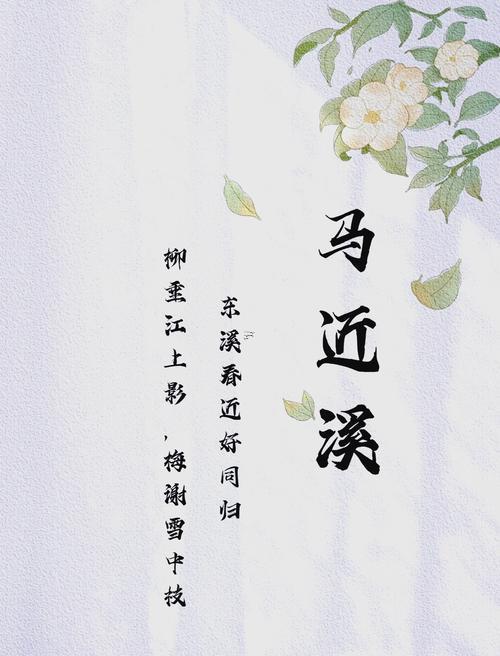 马近溪
东溪春近好同归
柳垂江上影，梅谢雪中技